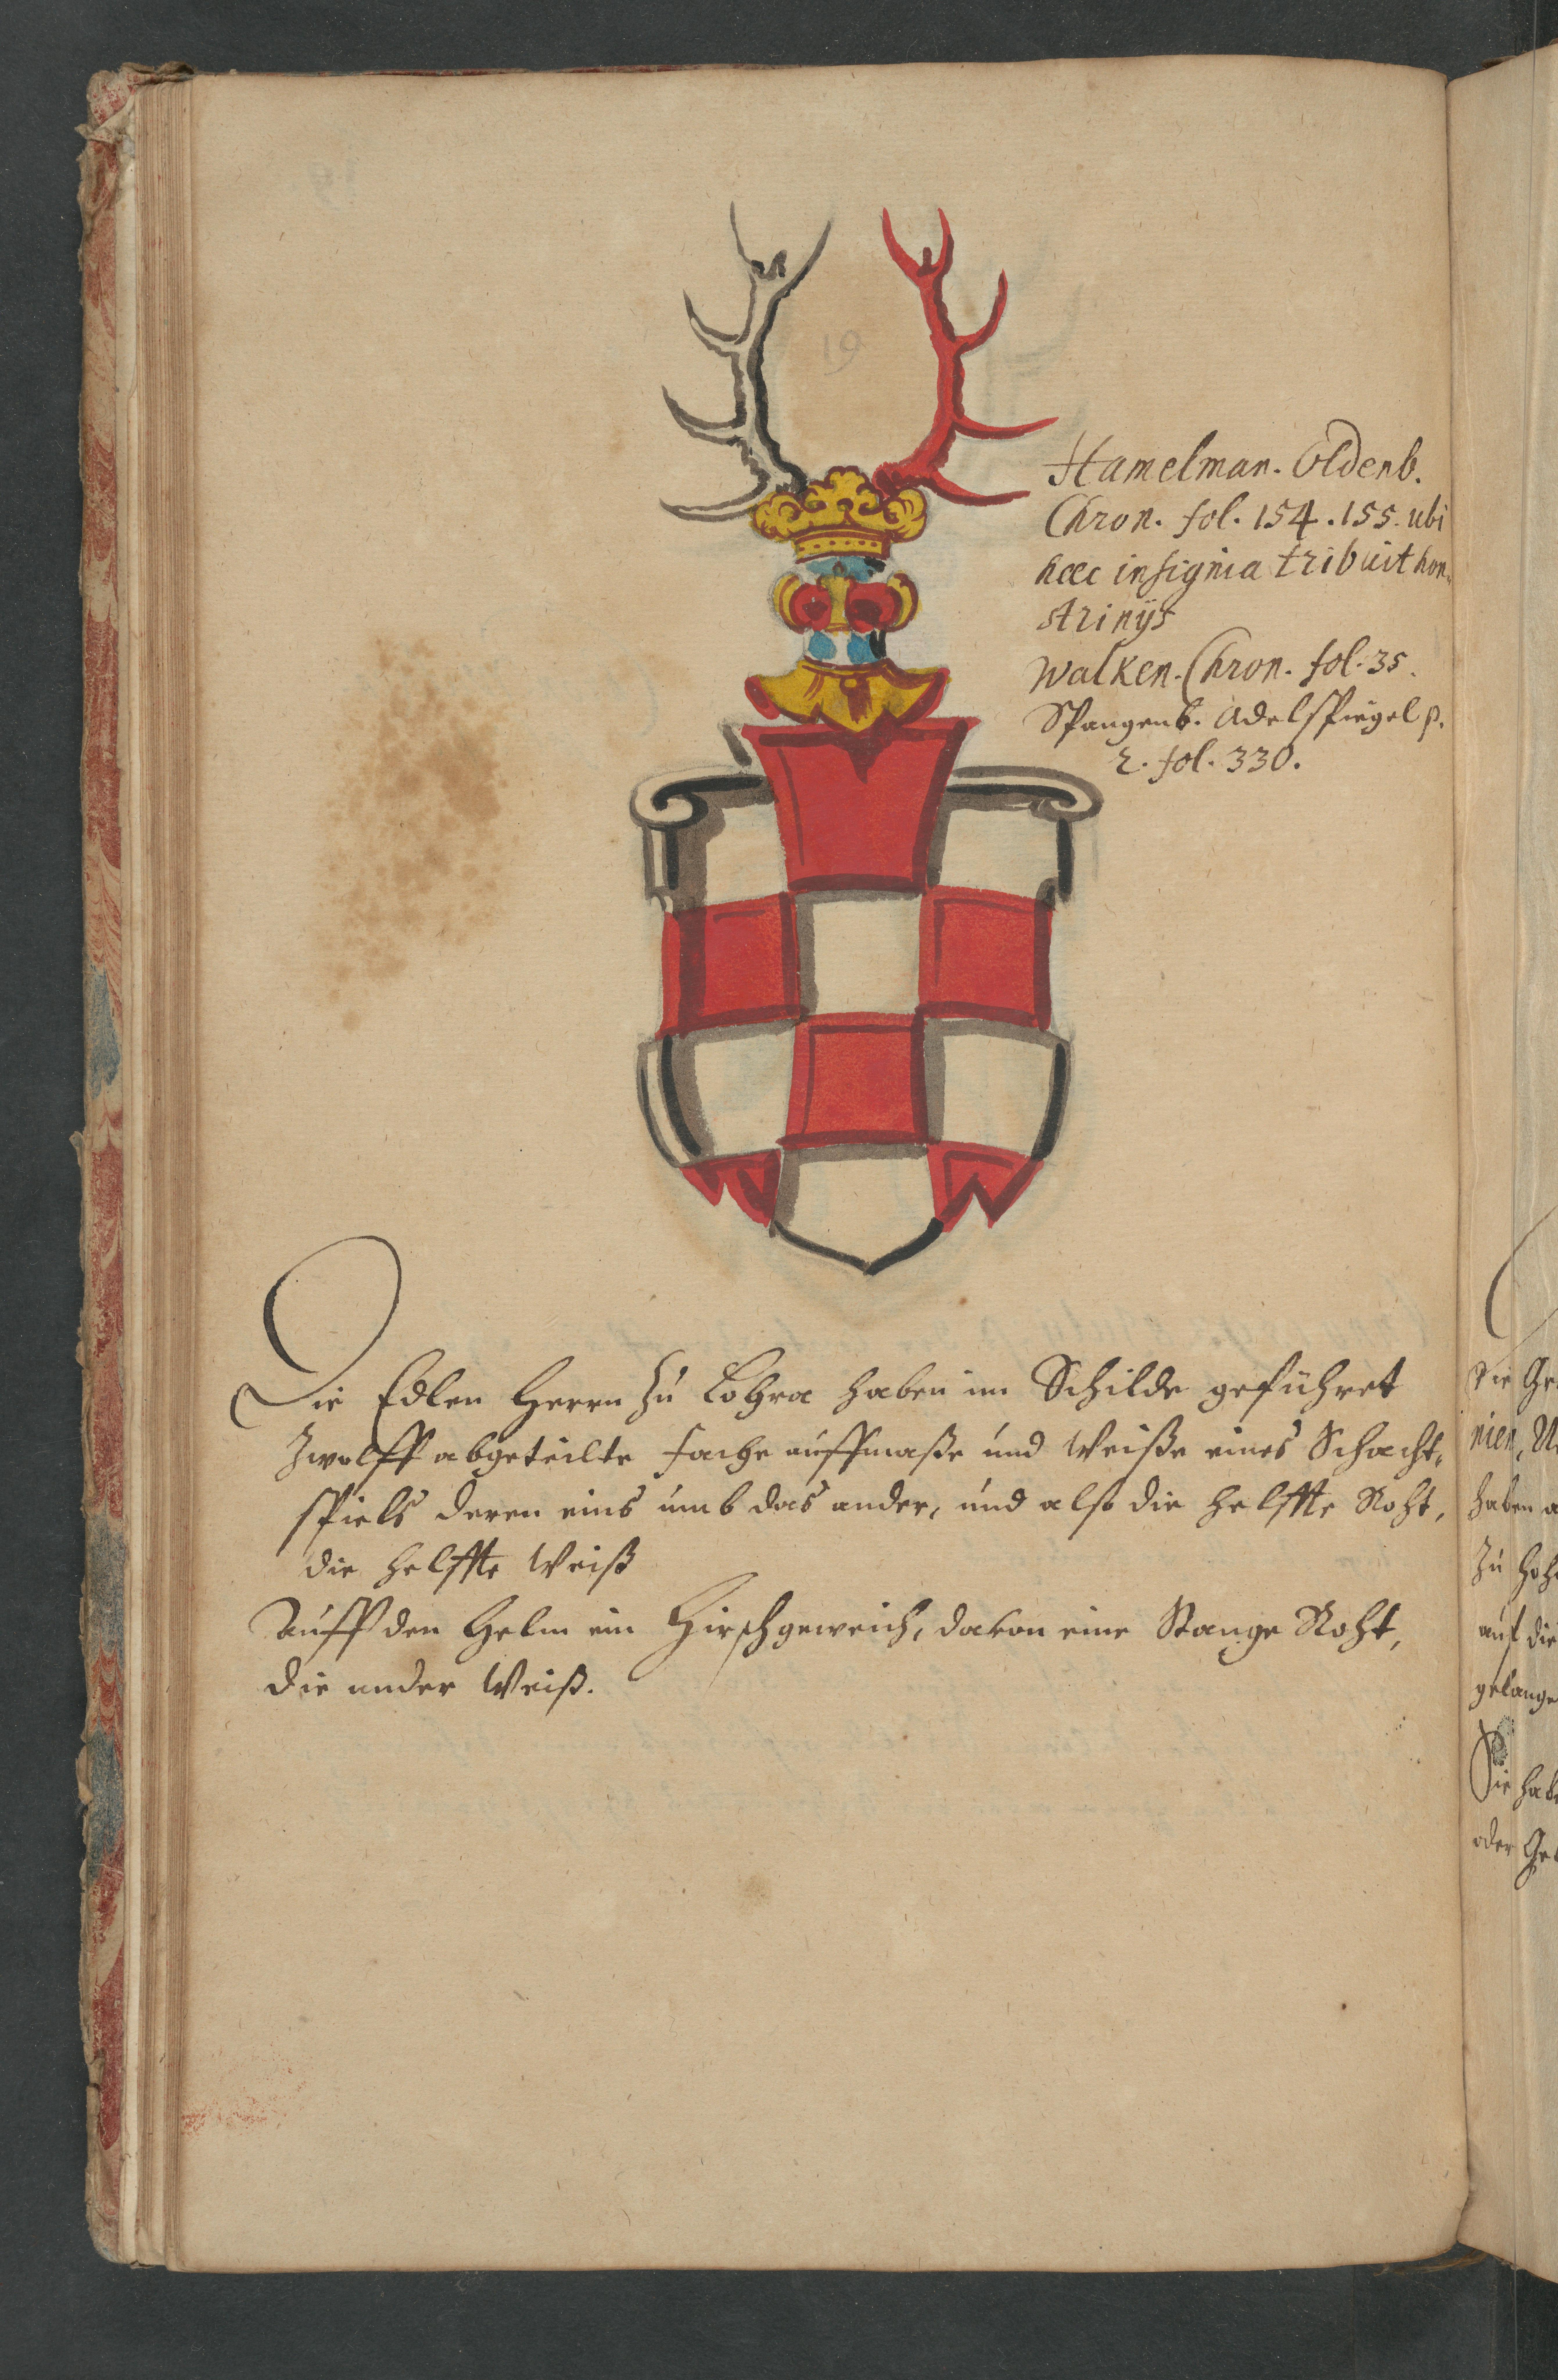 19
Hamelman. Oldenb.
Chron. fol. 154. 155. ubi
hæc insignia tribuit hon-
strinijs
Walken. Chron. fol. 35.
Spangenb. Adelspiegel p.
2. fol. 330.
Die Edlen Herrn zu Lohra haben im Schilde geführet
zwolff abgeteilte fache auff maße und Weiße eines Schacht-
spiels deren eins umb das ander, und also die helffte Roht,
die helffte Weiß
Auff den Helm ein Hirschgeweich, davon eine Stange Roht,
die ander Weiß.
Die
nien,
haben
Zu
auf die
gelange
Sie hab
oder